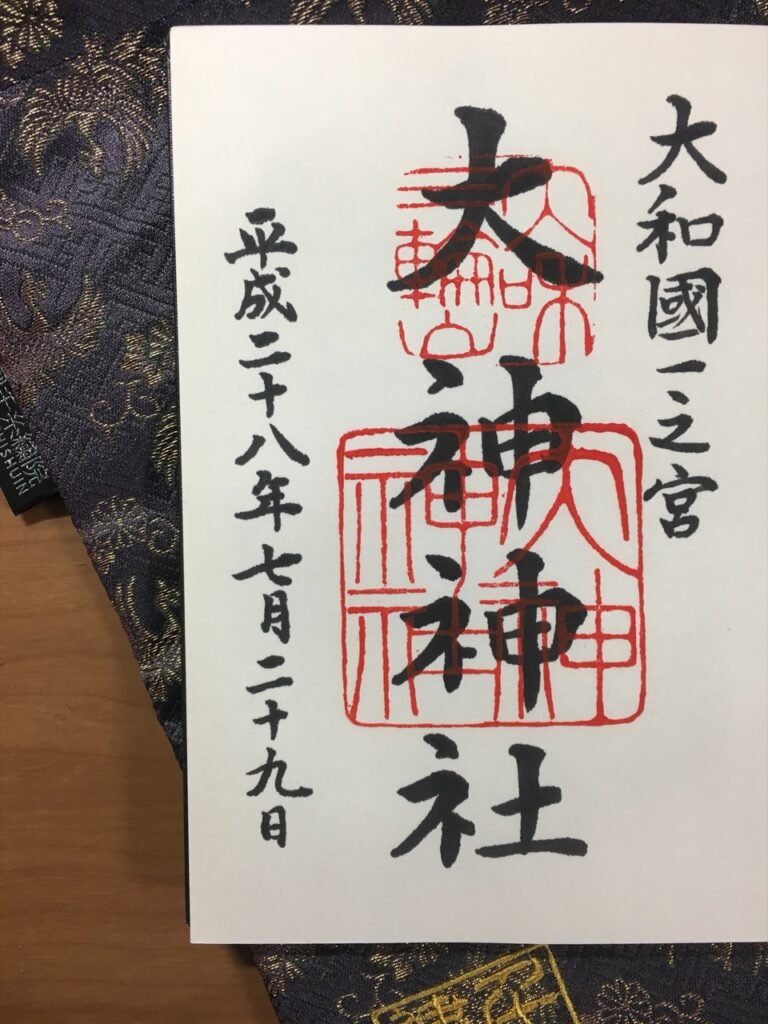 大和國一之宮
大神神社
大神
神社
平成二十八年七月二十九日